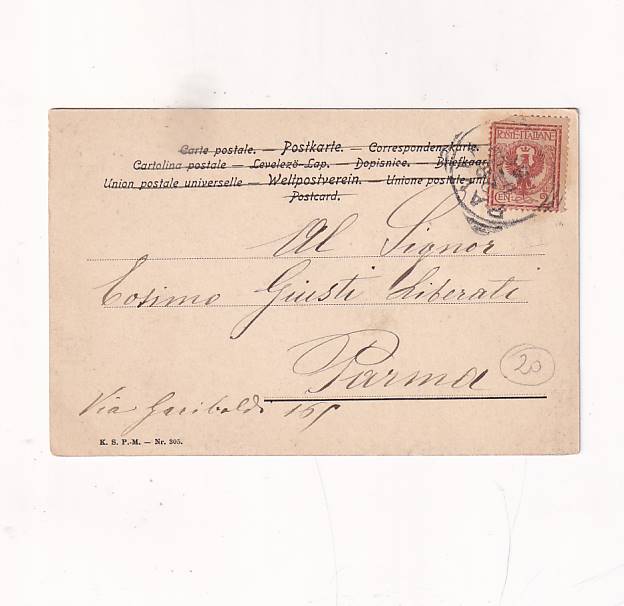 Carte postale. — Postkarte. — Correspondenzkarte.
Cartolina postale — Levelező-Lap. — Dopisnice. — Briefkaart
Union postale universelle — Weltpostverein. — Unione postale
Postcard.
POSTE ITALIANE
CEN. 2
Al Signor
Cosimo Giusti Liberati
Parma
20
Via Garibaldi
K. S. P.-M. — Nr. 305.